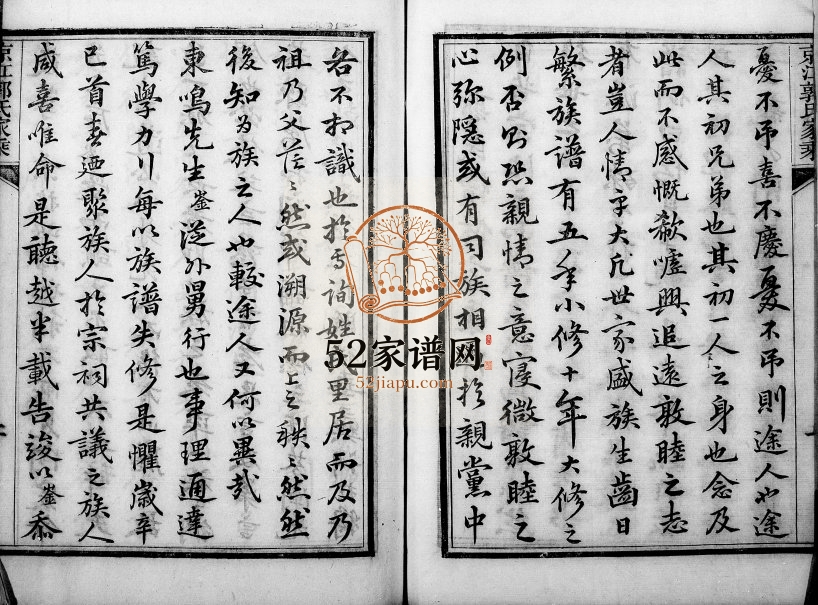 京江郭氏家乘
憂不弔喜不慶憂不弔則途人也途
人其初兄弟也其初一人之身也念及
此而不感慨欷嘘興追遠敦睦之志
者豈人情乎大凡世家盛族生齒日
繁族譜有五年小修十年大修之
例否則恐親情之意寖微敦睦之
心弥隱或有同族相 於親黨中
名不相識也於 詢姓 里居而及乃
祖乃父茫〻然或溯源而上之秩〻然然
後知为族之人也較途人又何以異哉
東鳴先生崟從外舅行也事理通達
篤學力行每以族譜失修是懼歲辛
巳首春廼聚族人於宗祠共議之族人
咸喜唯命是聽越半載告竣以崟忝
京江郭氏家乘
52家谱网
52jiapu.com